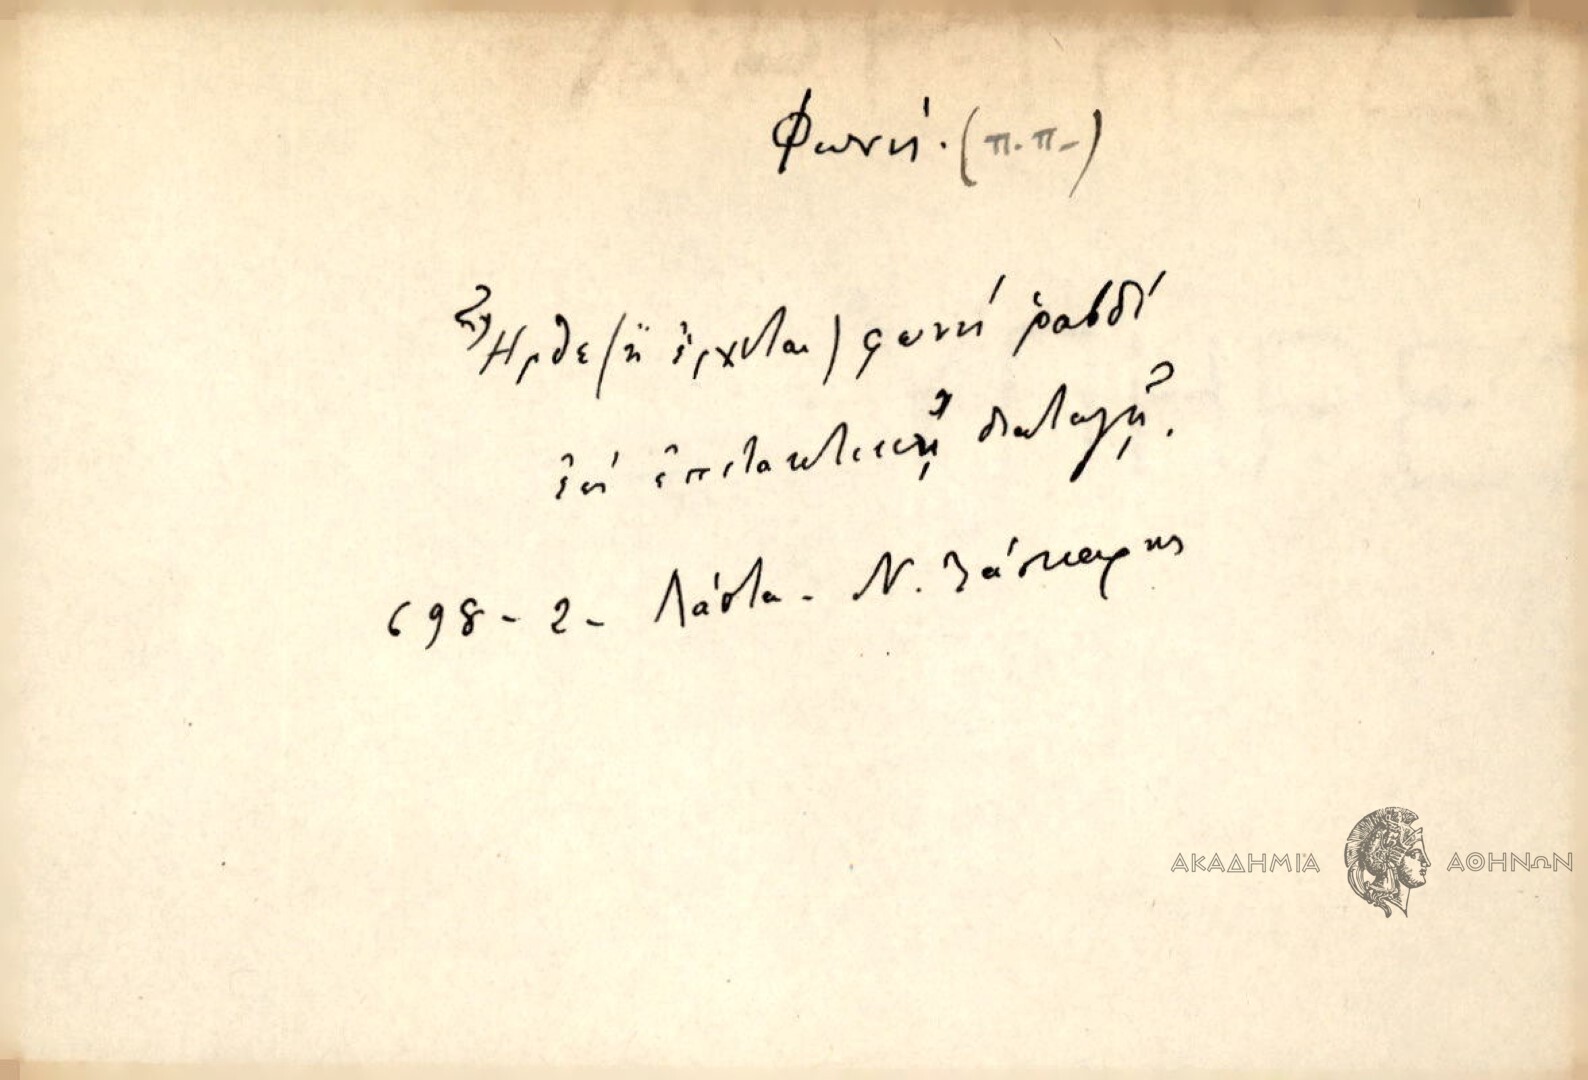 Φωνή. (π.π.)
Ἦρθε (ἢ ἔρχεται) φωνή ῥαβδί
ἐπί ἐπιτακτικῇ διαταγῇ.
698-2- Λάστα - Ν. Λάσκαρης
ΑΚΑΔΗΜΙΑ ΑΘΗΝΩΝ